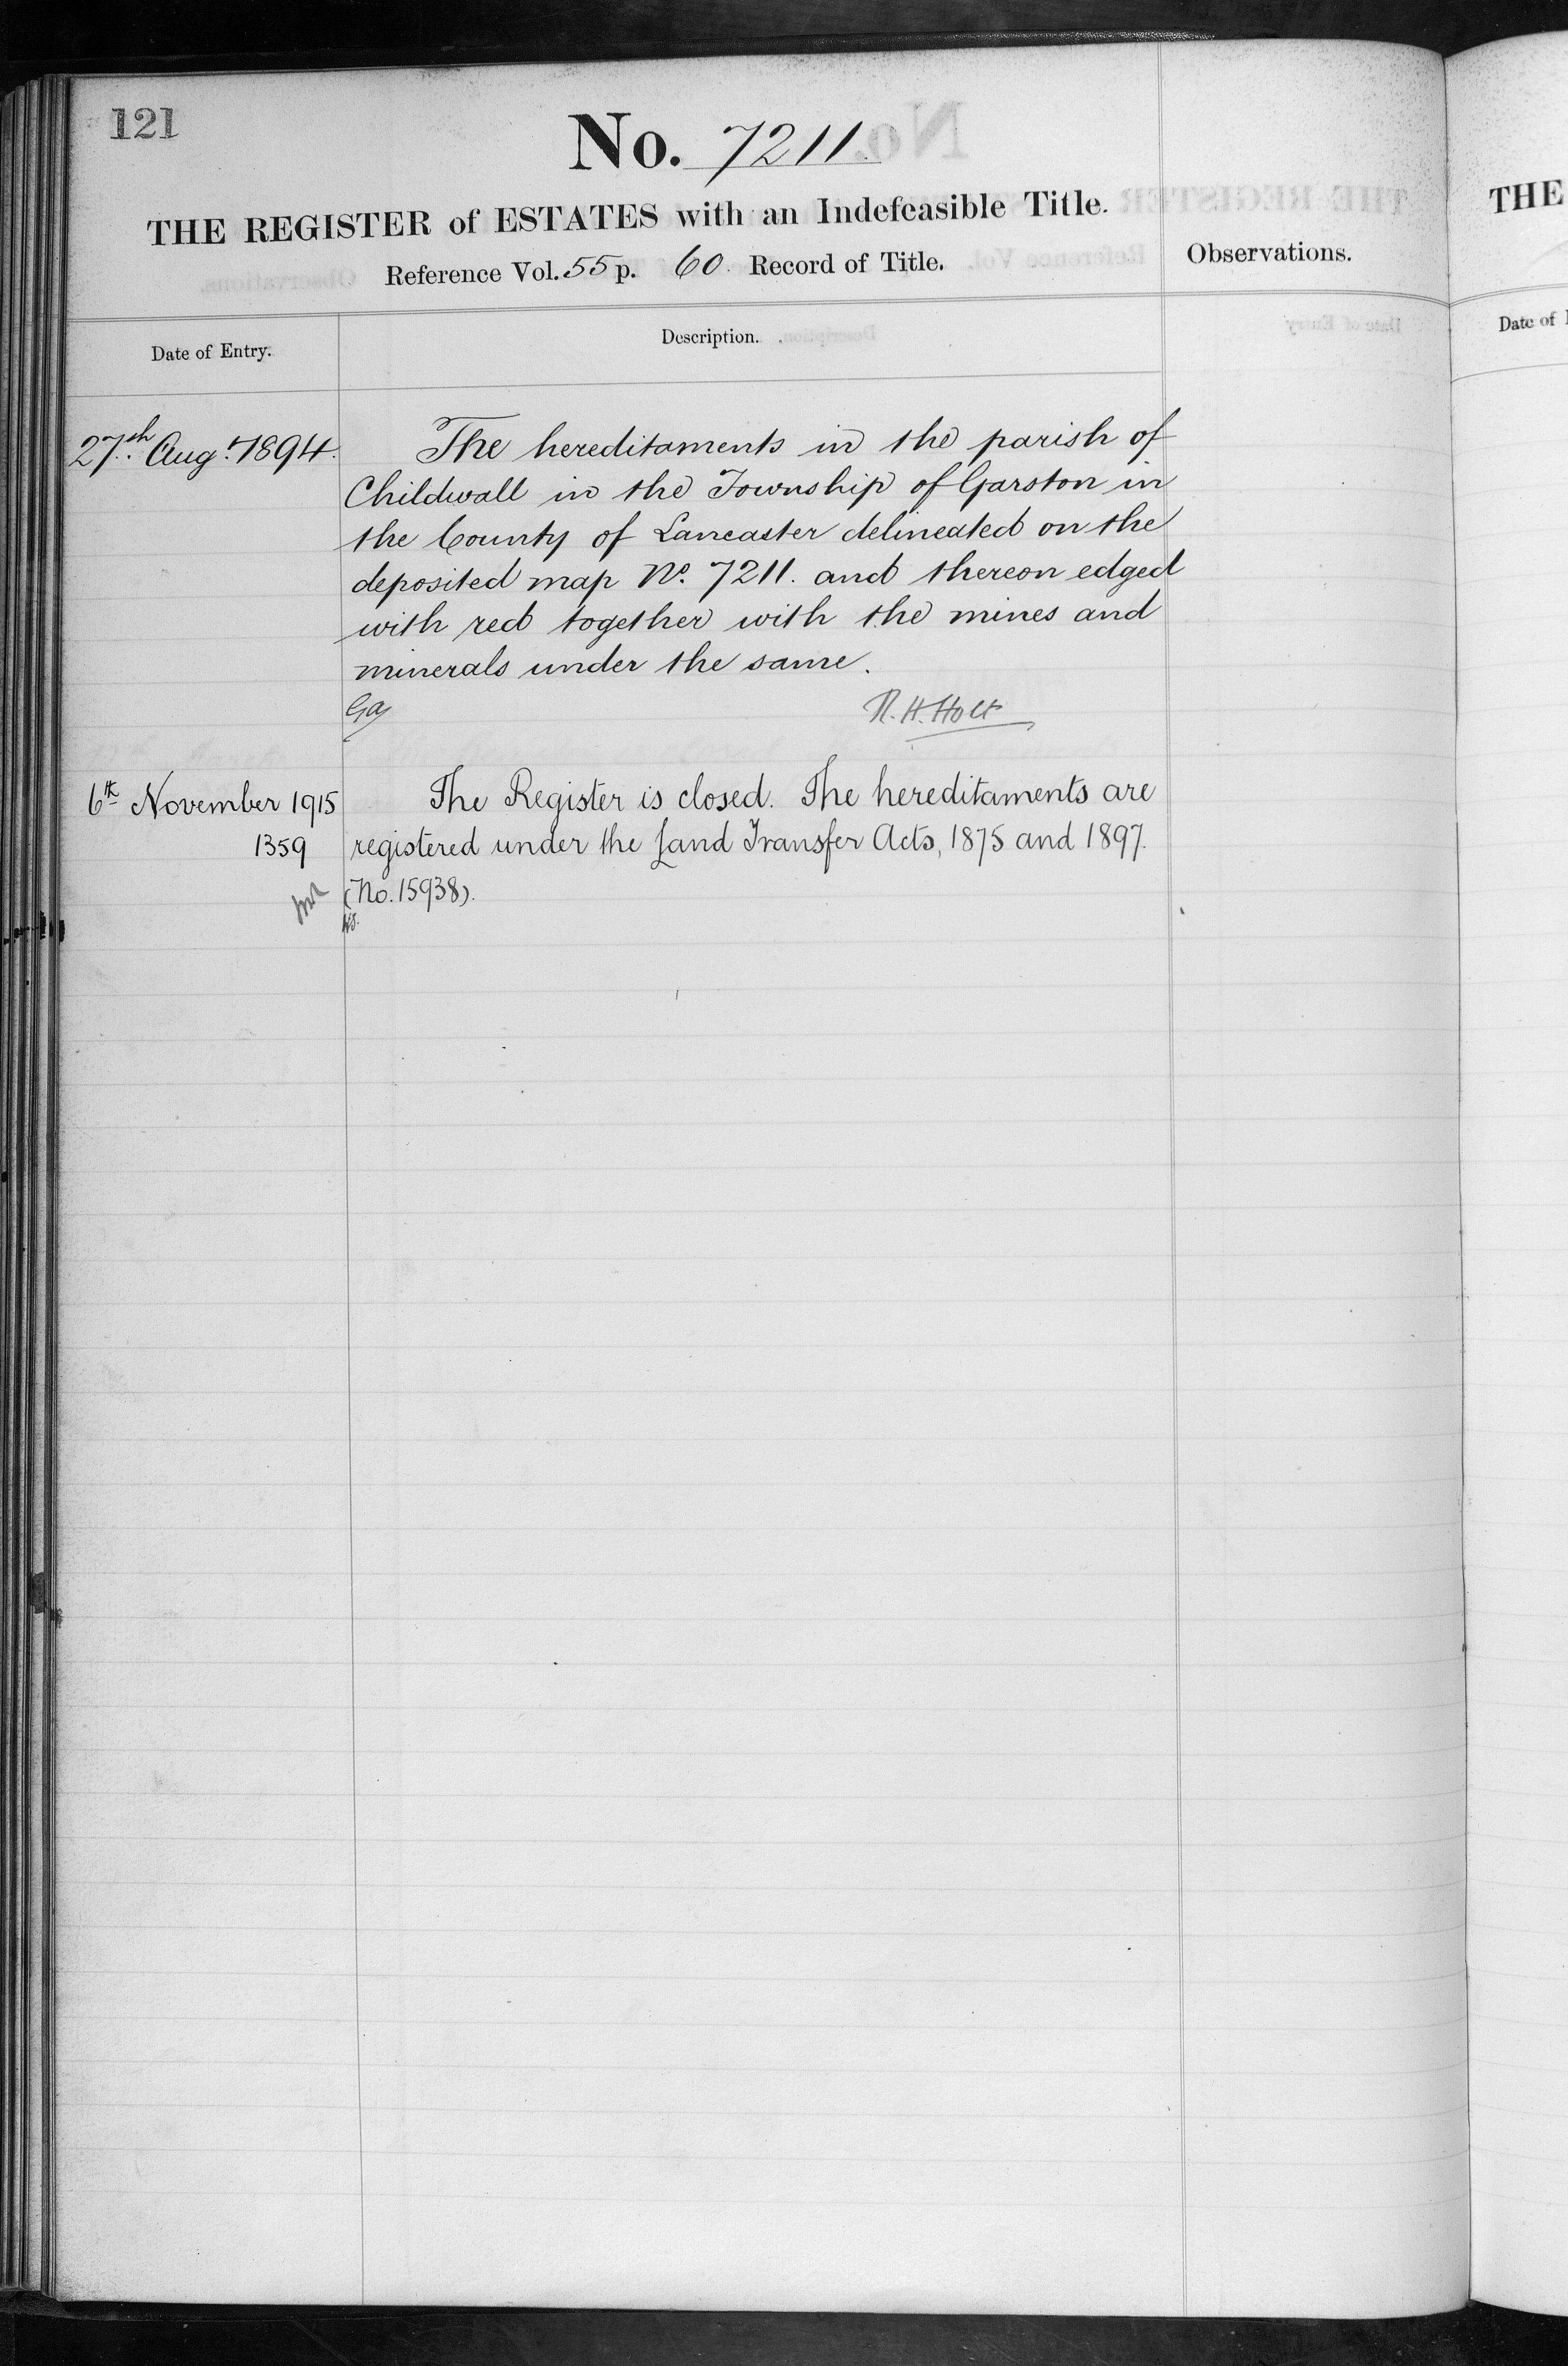 121
No. 7211.
THE REGISTER of ESTATES with an Indefeasible Title.
Reference Vol. 55 p. 60. Record of Title.
Observations.
Date of Entry.
Description.
27th Augt. 1894.
The hereditaments in the parish of
Childwall in the Township of Garston in
the County of Lancaster delineated on the
deposited map No. 7211. and thereon edged
with red together with the mines and
minerals under the same.
R. H. Holt
6th November 1915
1359
The Register is closed. The hereditaments are
registered under the Land Transfer Acts, 1875 and 1897.
(No. 15938).
THE
Date of